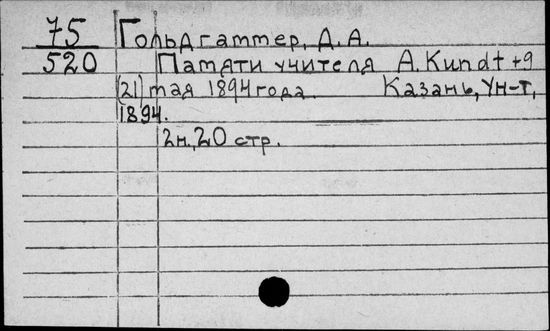 75 Гольдгаммер, Д. А.
520 Памяти учителя A. Kundt +9
(21) мая 1894 года. Казань, Ун-т,
1894.
2н., 20 стр.